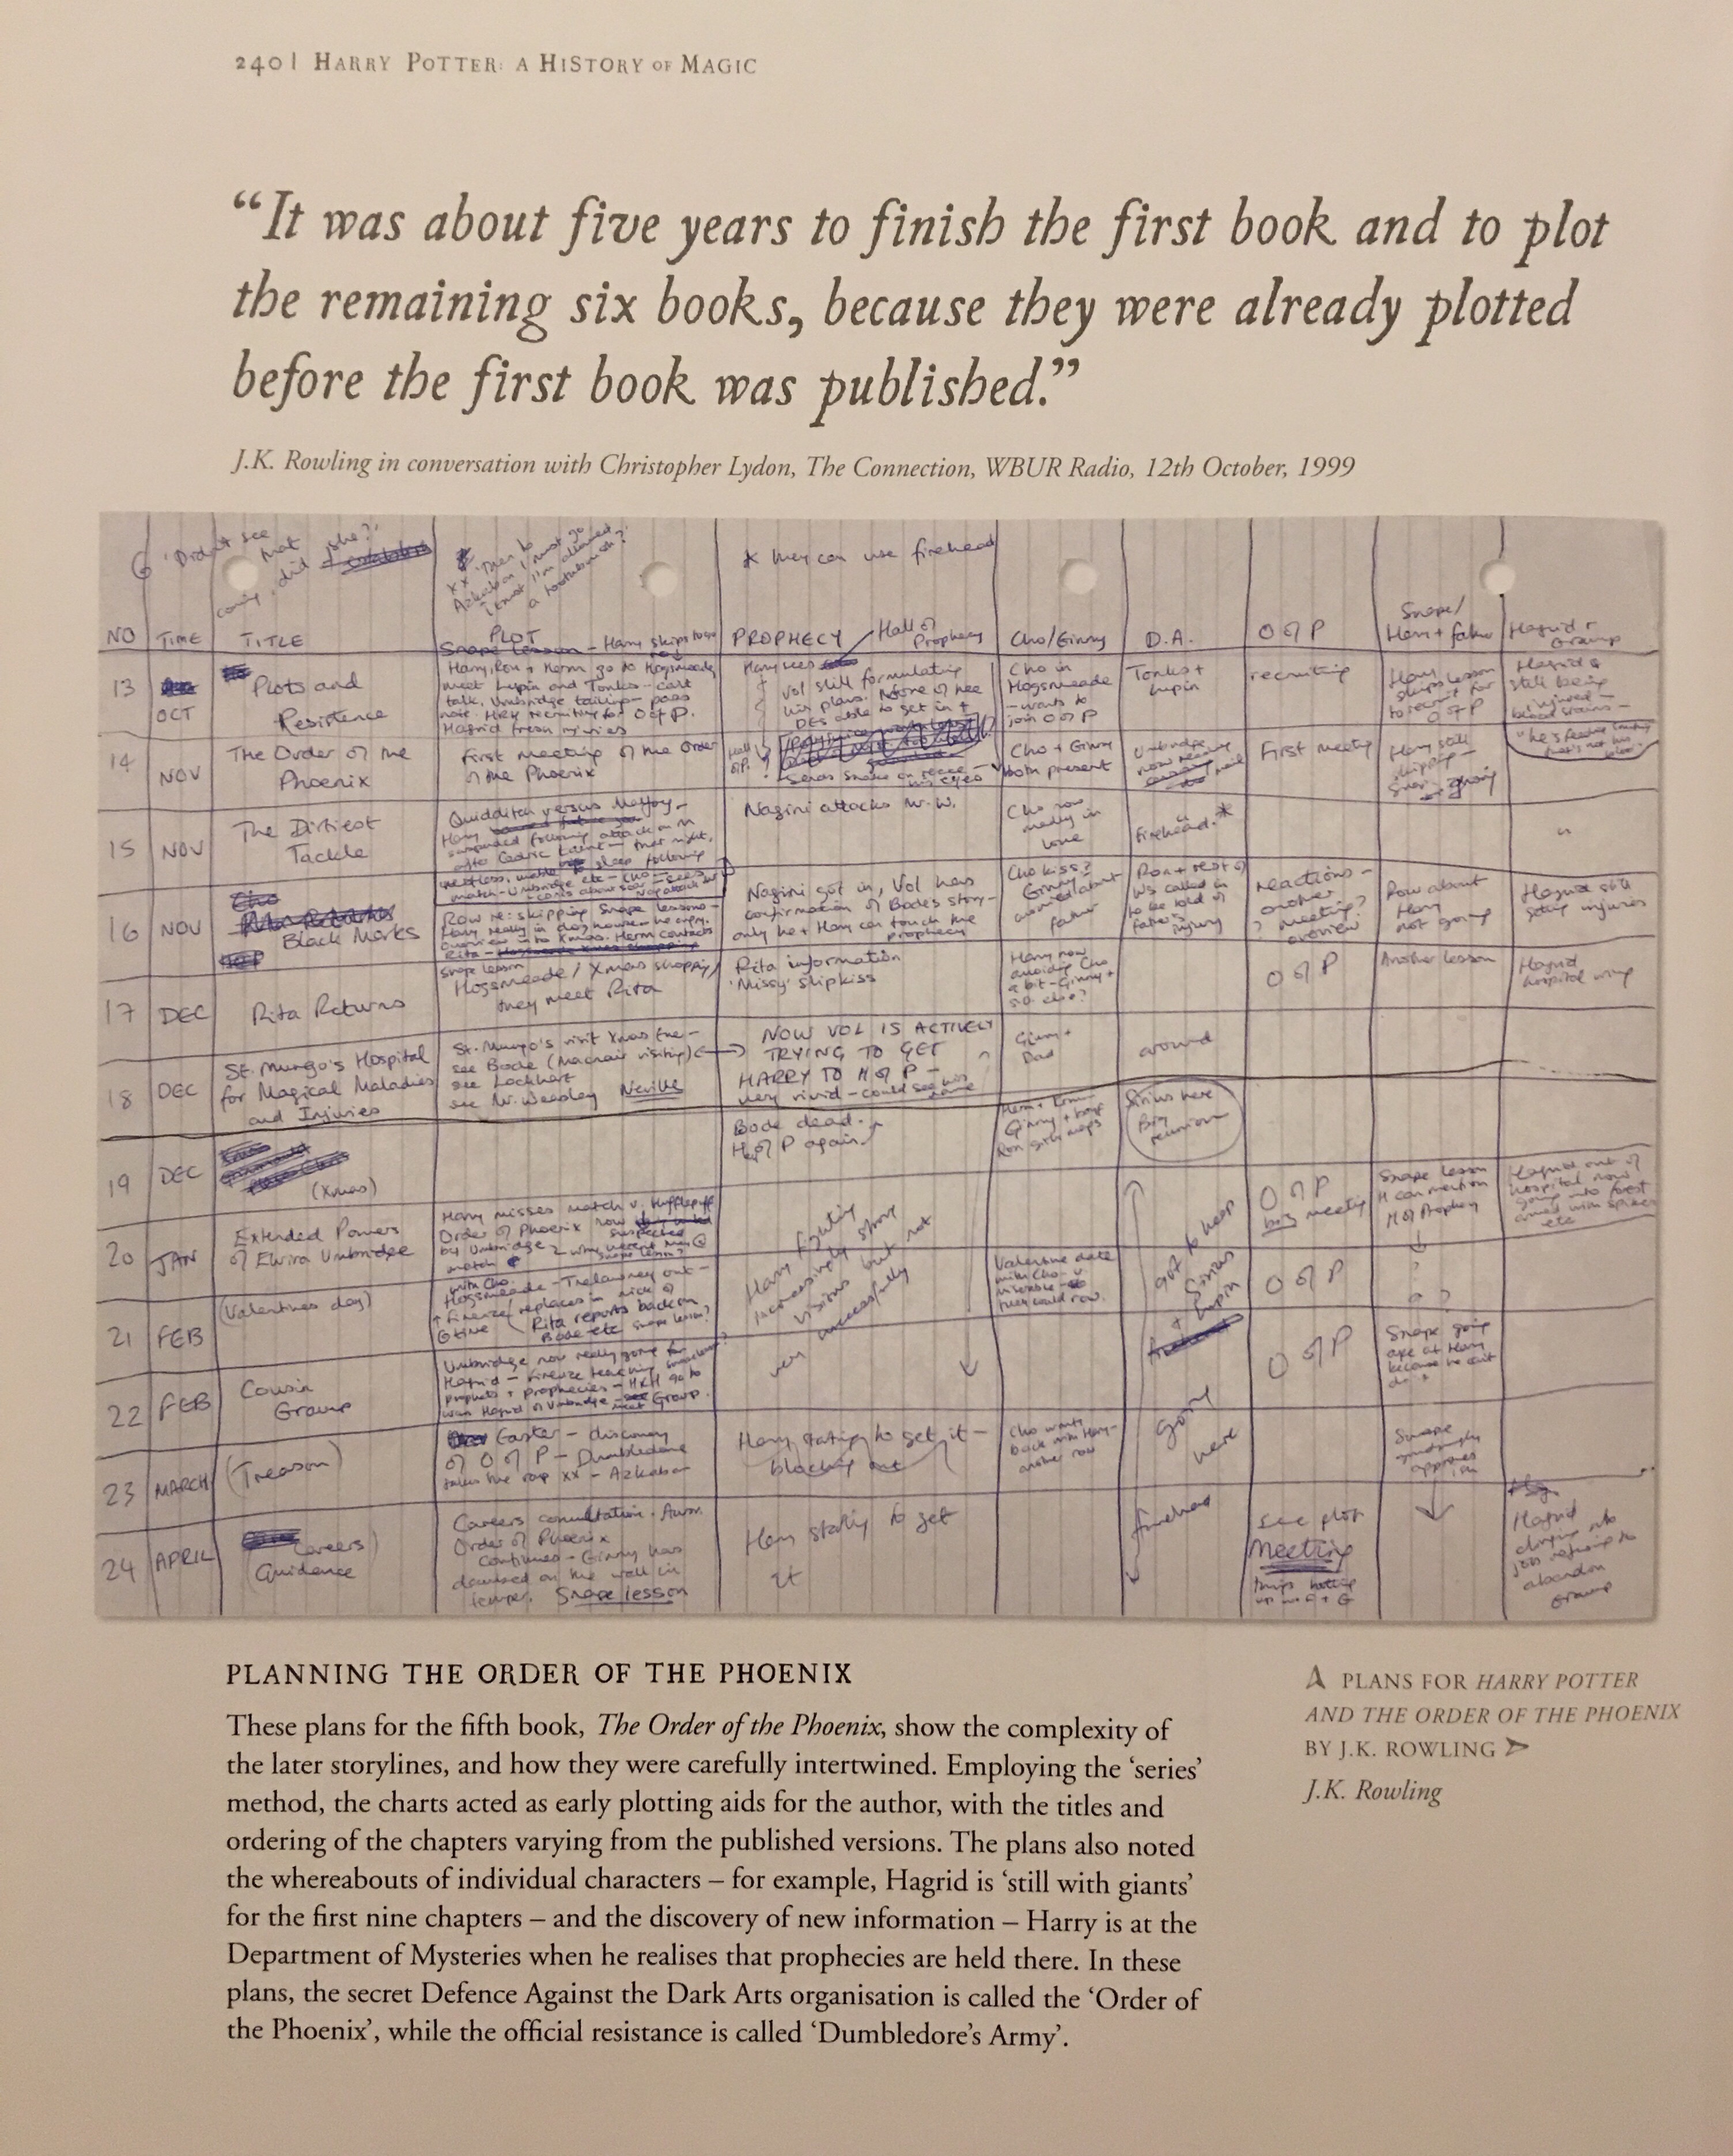 240 | HARRY POTTER: A HISTORY OF MAGIC
“It was about five years to finish the first book and to plot
the remaining six books, because they were already plotted
before the first book was published.”
J.K. Rowling in conversation with Christopher Lydon, The Connection, WBUR Radio, 12th October, 1999
'Didn't see that
coming, did she?'
xx 'Then to
Azkaban I must go
I trust I'm allowed
a toothbrush?'
* they can use firehead
NO TIME TITLE PLOT PROPHECY Hall of Prophecy Cho/Ginny D.A. O of P Snape/ Harry + father Hagrid + Grawp
13 OCT Plots and Resistence
Harry, Ron + Herm go to Hogsmeade,
meet Lupin and Tonks - can't
talk, Umbridge tailing - pass
note. HRH recruiting for O of P.
Hagrid fresh injuries
Vol still formulating
his plans. None of the
DEs able to get in +
Cho in
Hogsmeade
- wants to
join O of P
Tonks +
Lupin
recruiting
Harry
skips lesson
to recruit for
O of P
Hagrid
still being
injured -
blood stains -
14 NOV The Order of the Phoenix
First meeting of the Order
of the Phoenix
Cho + Ginny
both present
Umbridge
now reading
mail
First meeting
Harry still
skipping -
15 NOV The Dirtiest Tackle
Quidditch versus Malfoy -
Nagini attacks Mr. W.
Cho now
madly in
love
firehead. *
16 NOV Black Marks
Row re: skipping Snape lessons -
Nagini got in, Vol has
confirmation of Bode's story -
only he + Harry can touch the
prophecy
Cho kiss?
Ginny
worried about
father
Ron + rest of
Ws called in
to be told of
father's
injury
reactions -
another
meeting?
overview
Row about
Harry
not going
Hagrid still
getting injuries
17 DEC Rita Returns
Snape lesson
Hogsmeade / Xmas shopping
they meet Rita
Rita information
'Missy' skipkiss
Harry now
avoiding Cho
a bit - Ginny +
s.o. else?
O of P
Another lesson
Hagrid
hospital wing
18 DEC St. Mungo's Hospital
for Magical Maladies
and Injuries
St. Mungo's visit Xmas Eve -
see Bode (Macnair visiting)
see Lockhart
see Mr. Weasley Neville
NOW VOL IS ACTIVELY
TRYING TO GET
HARRY TO H of P -
very vivid - could see his name
Ginny +
Dad
around
19 DEC (Xmas)
Bode dead.
H of P again
Sirius here
Big
reunion
20 JAN Extended Powers
of Elvira Umbridge
Harry misses match v. Hufflepuff
Order of Phoenix now suspected
by Umbridge
Harry fighting
increasingly strong
visions but not
very successfully
got to keep
Sirius
+ Lupin
O of P
big meeting
Snape lesson
H can mention
H of Prophecy
Hagrid out of
hospital now
going into forest
armed with spikes
etc
21 FEB (Valentines day)
with Cho.
Hogsmeade - Trelawney out -
Firenze replaces in nick of
time
Rita reports back on
Bode etc Snape lesson?
Valentine date
with Cho -
miserable -
they could row.
O of P
?
22 FEB Cousin Grawp
Umbridge now really going for
Hagrid - Firenze teaching
prophets + prophecies - HRH go to
warn Hagrid of Umbridge - meet Grawp.
O of P
Snape going
ape at Harry
because he can't
do it
23 MARCH (Treason)
Easter - discovery
of O of P - Dumbledore
takes the rap xx - Azkaban
Harry starting to get it -
blocking out
Cho wants
back with Harry -
another row
going
here
Snape
grudgingly
approves
24 APRIL Careers Guidance
Careers consultation. Auror.
Order of Phoenix
continues - Ginny has
temper. Snape lesson
Harry starting to get
it
firehead
see plot
Meeting
things hotting
up with F + G
Hagrid
clinging into
job refusing to
abandon
Grawp
PLANNING THE ORDER OF THE PHOENIX
These plans for the fifth book, The Order of the Phoenix, show the complexity of
the later storylines, and how they were carefully intertwined. Employing the ‘series’
method, the charts acted as early plotting aids for the author, with the titles and
ordering of the chapters varying from the published versions. The plans also noted
the whereabouts of individual characters – for example, Hagrid is ‘still with giants’
for the first nine chapters – and the discovery of new information – Harry is at the
Department of Mysteries when he realises that prophecies are held there. In these
plans, the secret Defence Against the Dark Arts organisation is called the ‘Order of
the Phoenix’, while the official resistance is called ‘Dumbledore’s Army’.
PLANS FOR HARRY POTTER
AND THE ORDER OF THE PHOENIX
BY J.K. ROWLING
J.K. Rowling